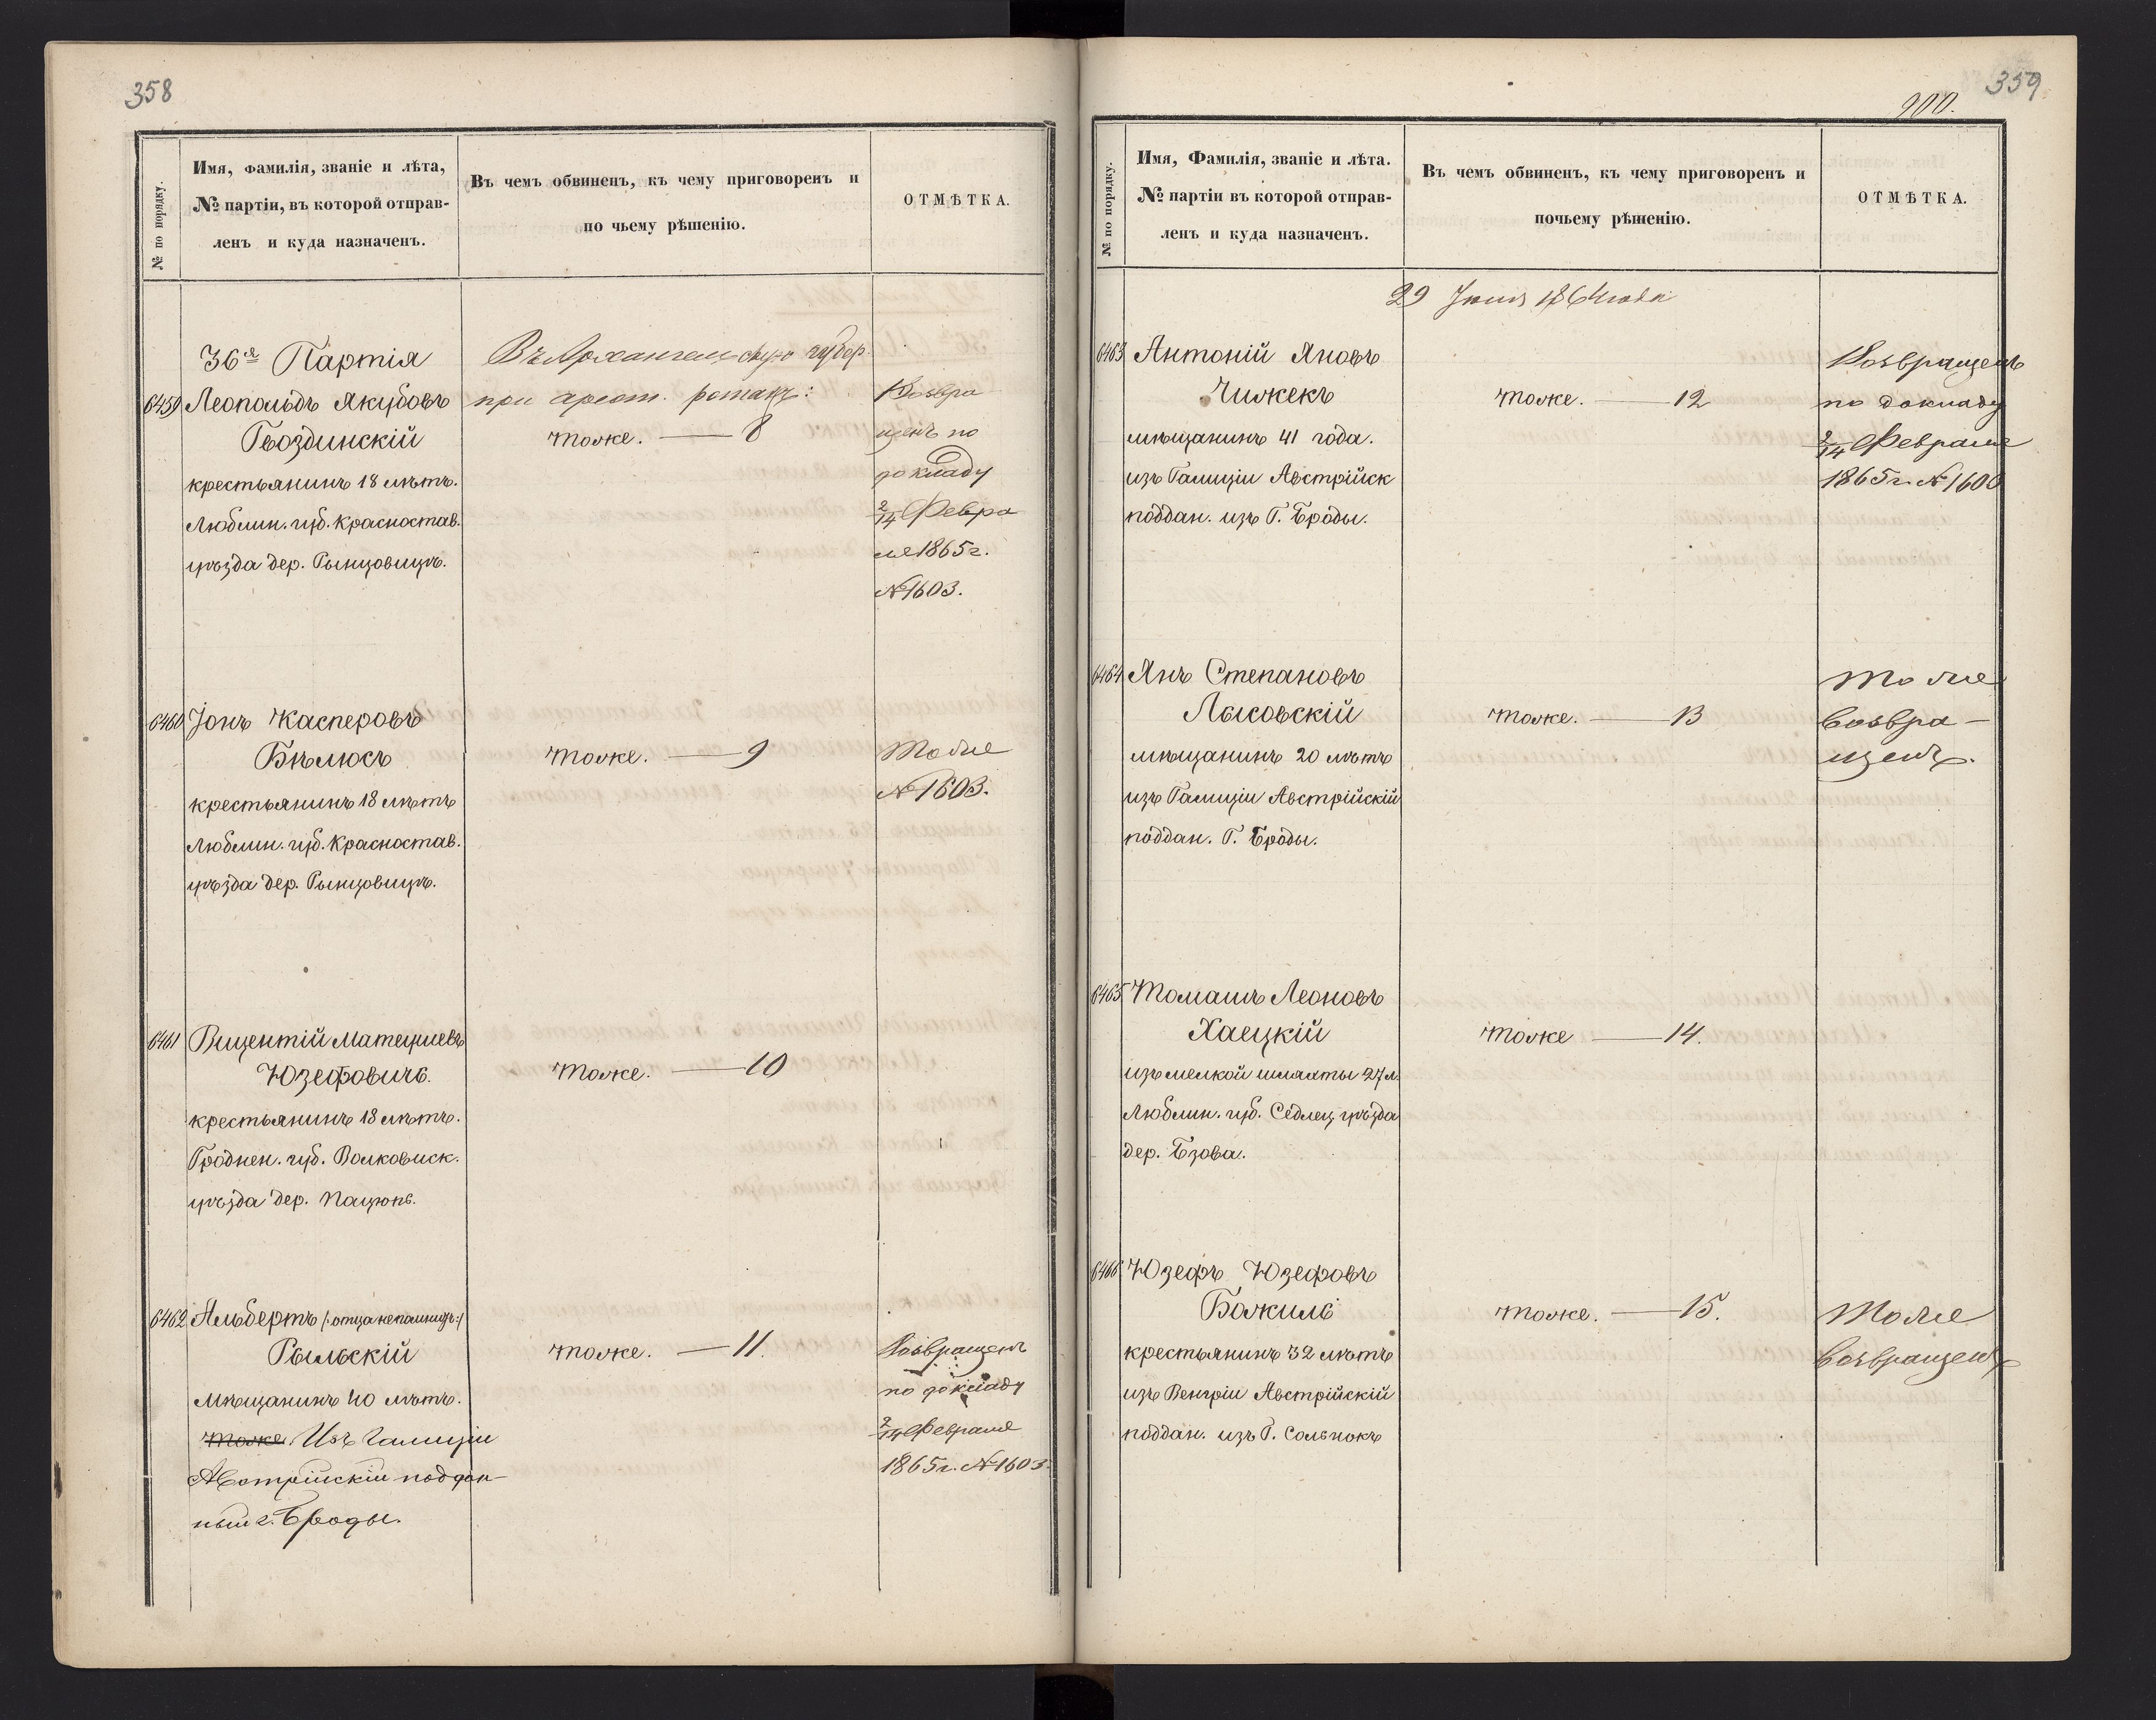 358
№ по порядку.
Имя, фамилія, званіе и лѣта,
№ партіи, въ которой отправ-
ленъ и куда назначенъ.
Въ чемъ обвиненъ, къ чему приговоренъ и
по чьему рѣшенію.
ОТМѢТКА.
36я Партія
Въ Архангельскую губер.
при арест. ротахъ:
6459 Леопольдъ Якубовъ
Гвоздинскій
крестьянинъ 18 лѣтъ.
Люблин. губ. Красностав.
уѣзда дер. Рынцовицъ.
тоже. — 8
Возвра
щенъ по
докладу
2/14 Февра
ля 1865 г.
№ 1603.
6460 Іонъ Касперовъ
Бѣлюсъ
крестьянинъ 18 лѣтъ
Люблин. губ. Красностав.
уѣзда дер. Рынцовицъ.
тоже. — 9
Тоже
№ 1603.
6461 Вицентій Матеушевъ
Юзефовичъ.
крестьянинъ 18 лѣтъ.
Гроднен. губ. Волковиск.
уѣзда дер. Пацюнъ.
тоже. — 10
6462 Альбертъ /:отца непомнитъ:/
Рыльскій
мѣщанинъ 40 лѣтъ.
тоже. Изъ Галиціи
Австрійскій поддан-
ный г. Броды.
тоже. — 11.
Возвращенъ
по докладу
2/14 Февраля
1865 г. № 1603.
359
900.
№ по порядку.
Имя, Фамилія, званіе и лѣта.
№ партіи въ которой отправ-
ленъ и куда назначенъ.
Въ чемъ обвиненъ, къ чему приговоренъ и
почьему рѣшенію.
ОТМѢТКА.
29 Іюня 1864 года
6463 Антоній Яновъ
Чижекъ
мѣщанинъ 41 года.
изъ Галиціи Австрійск
поддан. изъ Г. Броды.
тоже. — 12
Возвращенъ
по докладу
2/14 Февраля
1865 г. № 1600
6464 Янъ Степановъ
Лысовскій
мѣщанинъ 20 лѣтъ
изъ Галиціи Австрійскій
поддан. Г. Броды.
тоже. — 13
Тоже
возвра-
щенъ.
6465 Томашъ Леоновъ
Хаецкій
изъ мелкой шляхты 27 л.
Люблин. губ. Седлец уѣзда
дер. Бзова.
тоже — 14.
6466 Юзефъ Юзефовъ
Божиль
крестьянинъ 32 лѣтъ
изъ Венгріи Австрійскій
поддан. изъ Г. Сольнокъ
тоже. — 15.
Тоже
возвращенъ